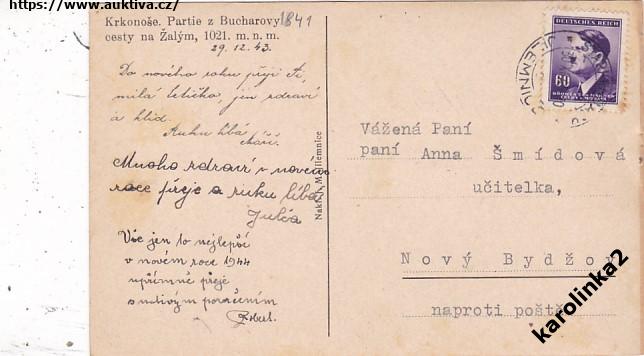 https://www.auktiva.cz/
Krkonoše. Partie z Bucharovy
cesty na Žalým, 1021. m. n. m.
1841
29.12.43.
Do nového roku přeji Ti,
milá tetičko, jen zdraví
a klid.
Ruku líbá
Mnoho zdraví v novém
roce přeje a ruku líbá
Julča
Vše jen to nejlepší
v novém roce 1944
upřímně přeje
s uctivým poručením
Nakl. M. Jilemnice
DEUTSCHES REICH
60
BÖHMEN UND MÄHREN
ČECHY A MORAVA
JILEMNICE
Vážená Paní
paní Anna Šmídová,
učitelka,
Nový Bydžov
naproti poště
karolinka2